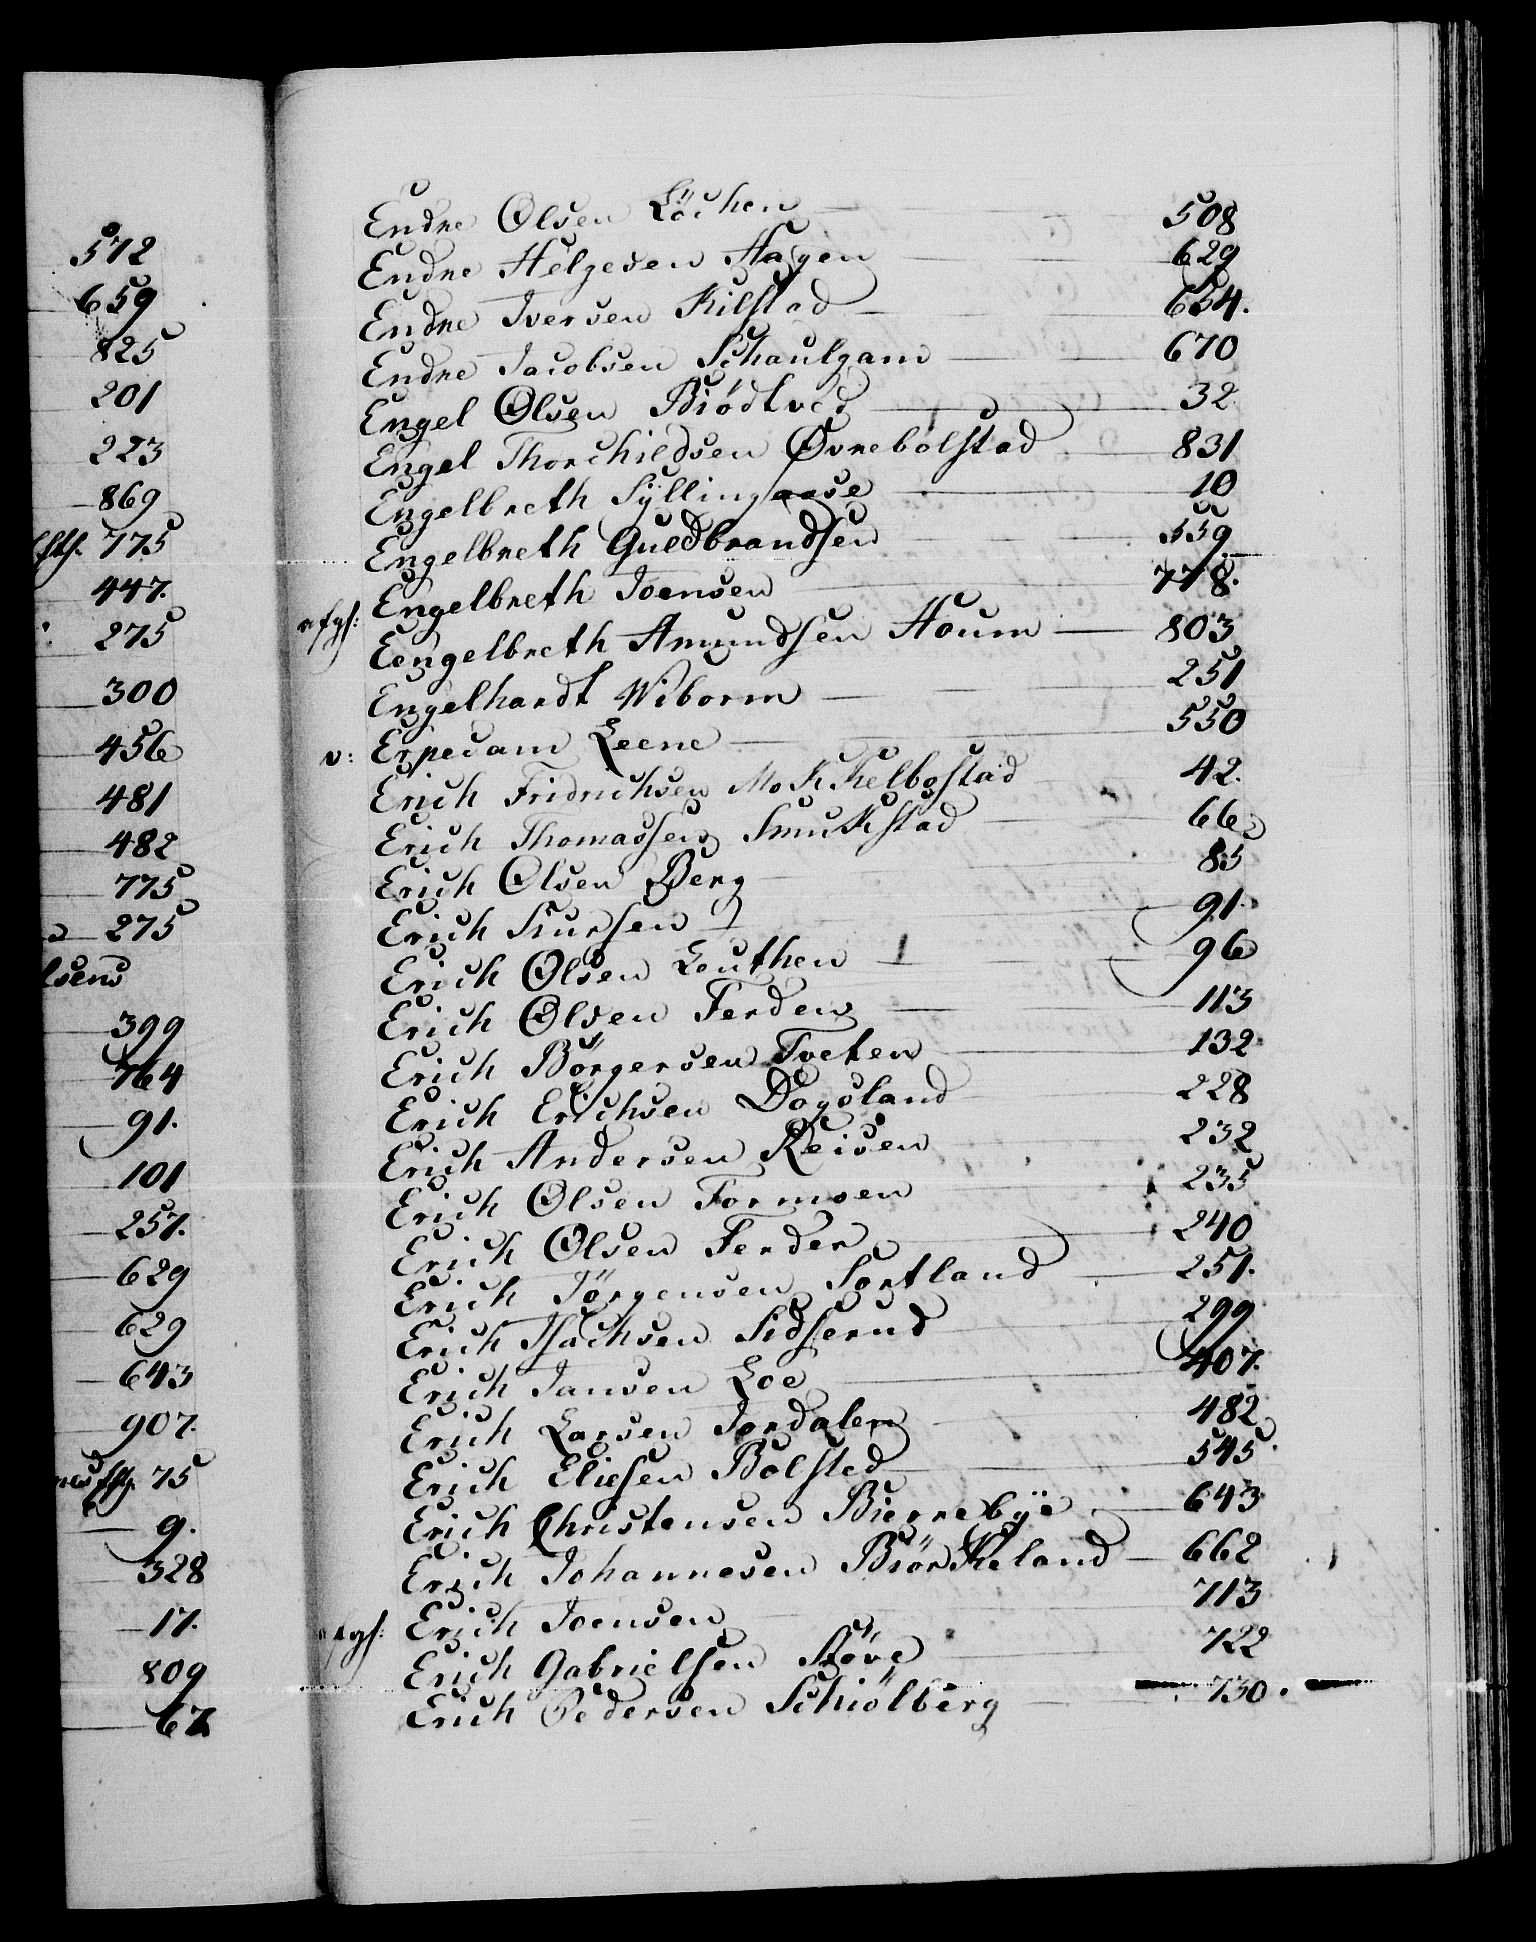 572
659
825
201
223
869
775
447.
275
300
456
481
482
775
275
lsens
399
764
91.
101
257.
629
629
643
907.
75
9.
328
17.
809
67
Endre Olsen Löchen 508
Endre Helgesen Hagen 629
Endre Iversen Kilstad 654.
Endre Jacobsen Schaulgam 670
Engel Olsen Biödtved 32
Engel Thorchildsen Øvrebolstad 831
Engelbreth Syllingaase 10
Engelbreth Guldbrandsen 559
Engelbreth Joensen 778.
Eengelbreth Amundsen Houm 803
Engelhardt Wiborm 251
v: Leene 550
Erich Fridrichsen MoKKelbostad 42.
Erich Thomassen SmuKstad 66
Erich Olsen Berg 85
Erich Siursen 91.
Erich Olsen Louthen 96
Erich Olsen Ferden 113
Erich Börgersen Tveten 132
Erich Erichsen Dogoland 228
Erich Andersen Reisen 232
Erich Olsen Formoen 235
Erich Olsen Ferder 240
Erich Jörgensen Sortland 251.
Erich Isachsen Sidserud 299
Erich Jansen Loe 407.
Erich Larsen Jordalen 482
Erich Eliesen Bolsted 545
Erich Christensen Bierrebÿe 643
Erich Johannesen BiörKeland 662
Erich Joensen 713
Erich Gabrielsen Støve 722
Erich Pedersen Schiölberg 730.